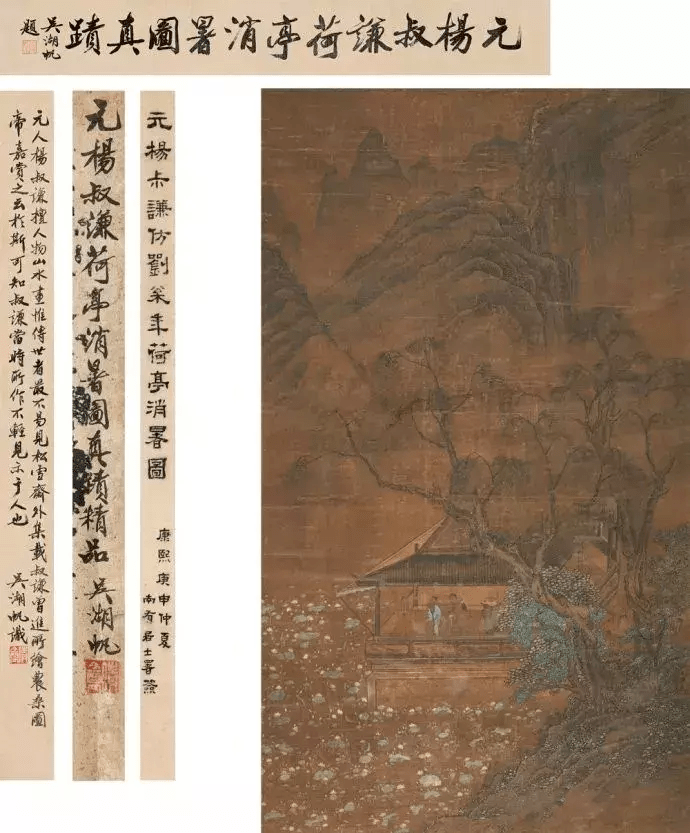 元楊叔謙荷亭消暑圖真蹟
吳湖帆
題
元楊尗謙仿劉枩年荷亭消暑圖
康熙庚申仲夏
南有居士署簽
元楊叔謙荷亭消暑圖真蹟精品 吳湖帆
元人楊叔謙擅人物山水畫惟傳世者最不易見松雪齋外集載叔謙曾進所繪農桑圖
帝嘉賞之云於斯可知叔謙當時所作不輕見示于人也 吳湖帆識